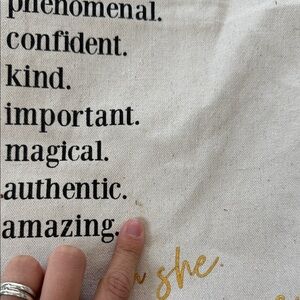 phenomenal.
confident.
kind.
important.
magical.
authentic.
amazing.
she.